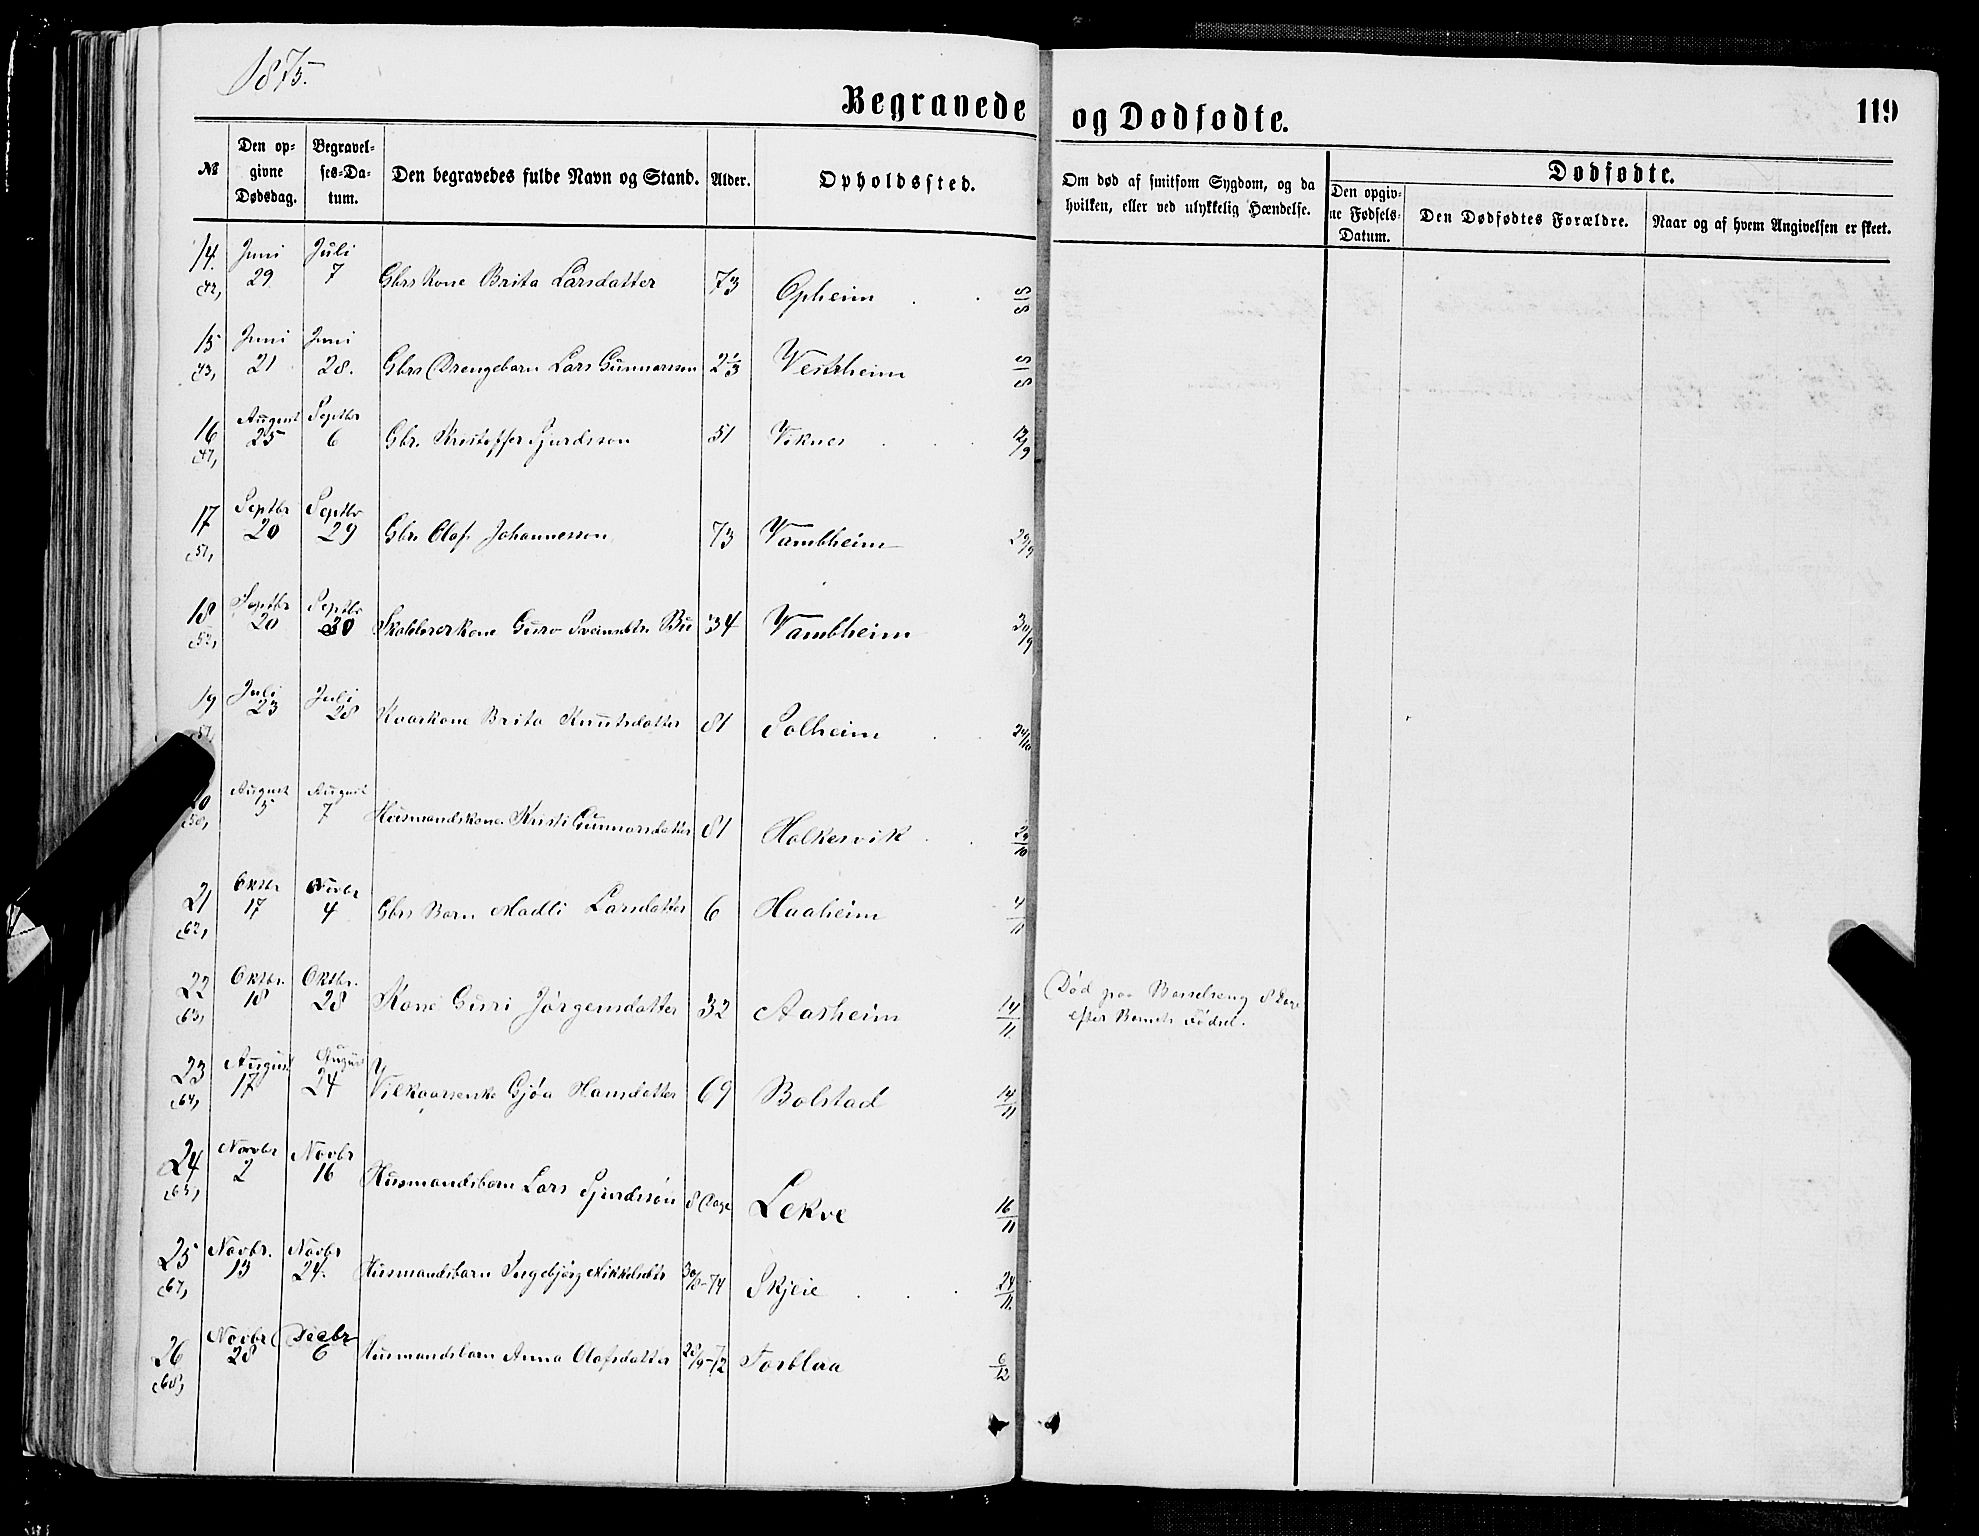 1875.
Begravede og Dødfødte.
119
№
Den opgivne Dødsdag.
Begravelses-Datum.
Den begravedes fulde Navn og Stand.
Alder.
Opholdssted.
Om død af smitsom Sygdom, og da hvilken, eller ved ulykkelig Hændelse.
Dødfødte.
Den opgivne Fødsels-Datum.
Den Dødfødtes Forældre.
Naar og af hvem Angivelsen er skeet.
14. Juni 29 Juli 7 Gbrs Kone Brita Larsdatter 73 Opheim
15 Juni 21 Juni 28. Gbrs Drengebarn Lars Gunnarsson 2 1/3 Vestrheim
16 August 25 Septbr 6 Gbr. Kristoffer Sjurdsson 51 Viknes 12/9
17 Septbr 20 Septbr 29 Gbr. Olaf Johannesson 73 Vambheim 29/9
18 Septbr 20 Septbr 30 Guro Bu 34 Vambheim 30/9
19 Juli 23 Juli 28 Kaarkone Brita Knutsdatter 81 Solheim 24/10
August 5 August 7 Husmandskone Kristi Gunnarsdatter 81 Holkesvik 24/10
21 Oktbr 17 Novbr 4 Gbrs Barn Madli Larsdatter 6 Haaheim 4/11
(62)
22 Oktbr. 18 Oktbr. 28 Kone Guri Jørgensdatter 32 Aasheim 14/11 Død paa Barselseng 8 Dage
(63) efter Barnets Fødsel.
23 August 17 August 24 Vilkaarsenke Gjøa Hansdatter 69 Bolstad 14/11
(64)
24 Novbr 2 Novbr 16 Husmandsbarn Lars Sjurdssøn 8 Dage Lekve 16/11
(65)
25 Novbr. 13 Novbr 24. Husmandsbarn Ingebjørg Mikkelsdtr 30/8-74 Skjeie 24/11
(67)
26 Novbr 28 Decbr 6 Husmandsbarn Anna Olafsdatter 28/9-72 Torblaa 6/12
(68)